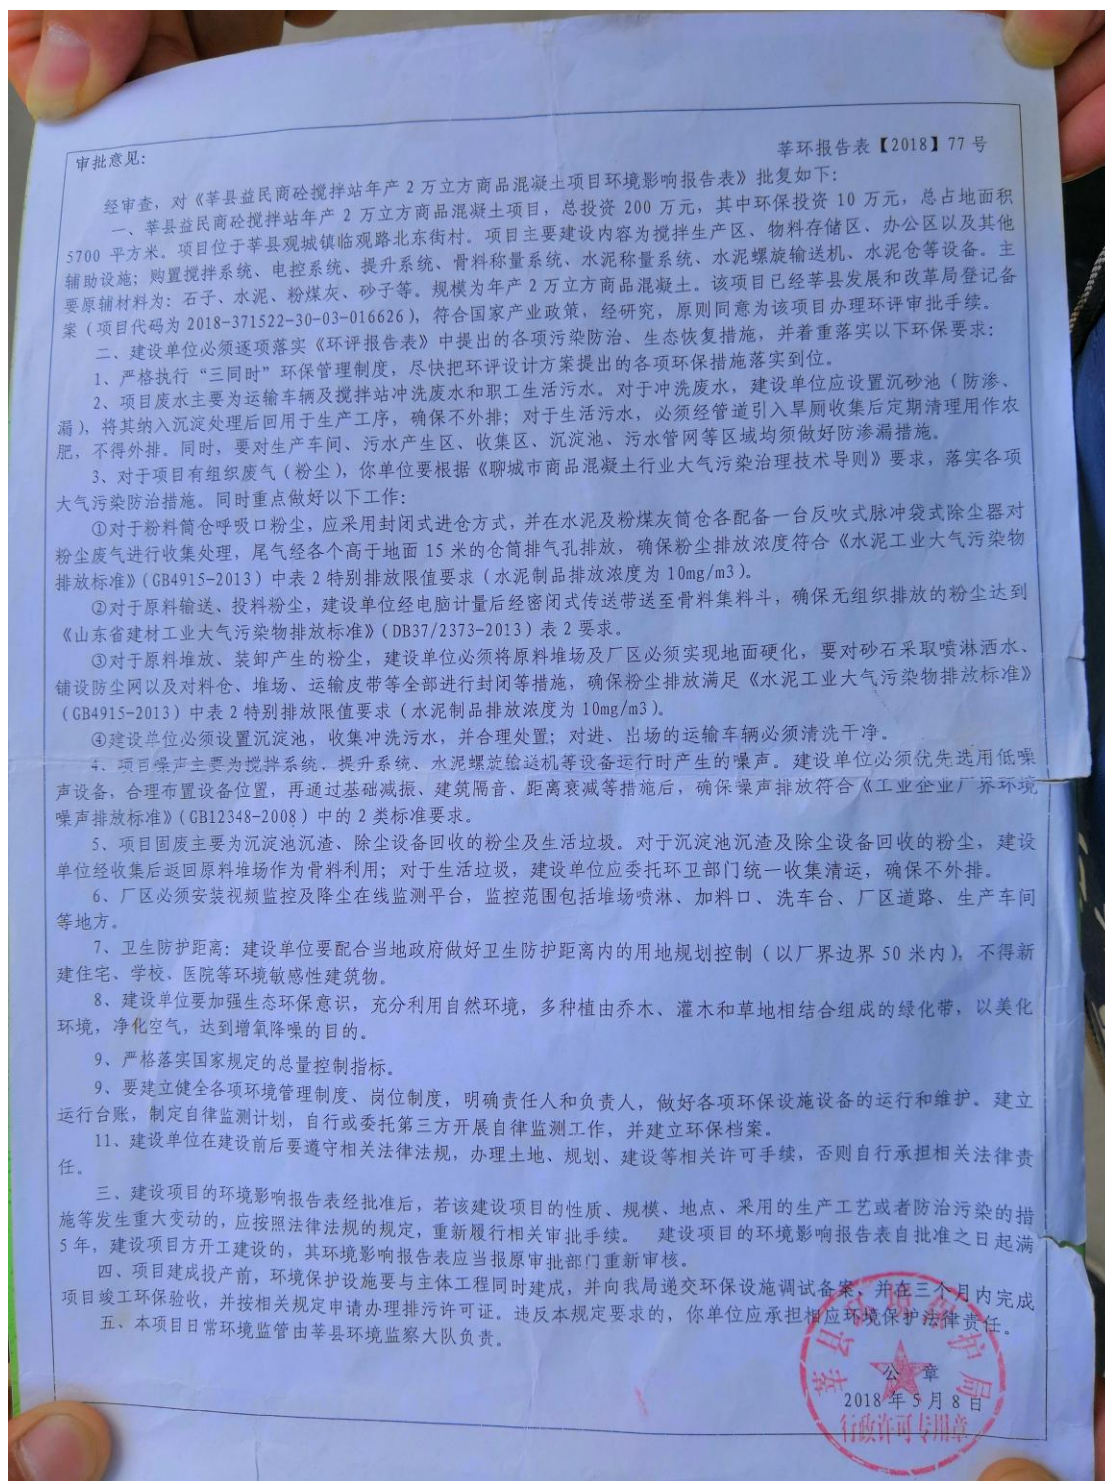 审批意见:
莘环报告表【2018】77号
经审查，对《莘县益民商砼搅拌站年产2万立方商品混凝土项目环境影响报告表》批复如下:
一、莘县益民商砼搅拌站年产2万立方商品混凝土项目，总投资200万元，其中环保投资10万元，总占地面积
5700平方米。项目位于莘县观城镇临观路北东街村。项目主要建设内容为搅拌生产区、物料存储区、办公区以及其他
辅助设施；购置搅拌系统、电控系统、提升系统、骨料称量系统、水泥称量系统、水泥螺旋输送机、水泥仓等设备。主
要原辅材料为：石子、水泥、粉煤灰、砂子等。规模为年产2万立方商品混凝土。该项目已经莘县发展和改革局登记备
案（项目代码为2018-371522-30-03-016626），符合国家产业政策，经研究，原则同意为该项目办理环评审批手续。
二、建设单位必须逐项落实《环评报告表》中提出的各项污染防治、生态恢复措施，并着重落实以下环保要求：
1、严格执行“三同时”环保管理制度，尽快把环评设计方案提出的各项环保措施落实到位。
2、项目废水主要为运输车辆及搅拌站冲洗废水和职工生活污水。对于冲洗废水，建设单位应设置沉砂池（防渗、
漏），将其纳入沉淀处理后回用于生产工序，确保不外排；对于生活污水，必须经管道引入旱厕收集后定期清理用作农
肥，不得外排。同时，要对生产车间、污水产生区、收集区、沉淀池、污水管网等区域均须做好防渗漏措施。
3、对于项目有组织废气（粉尘），你单位要根据《聊城市商品混凝土行业大气污染治理技术导则》要求，落实各项
大气污染防治措施。同时重点做好以下工作：
①对于粉料筒仓呼吸口粉尘，应采用封闭式进仓方式，并在水泥及粉煤灰筒仓各配备一台反吹式脉冲袋式除尘器对
粉尘废气进行收集处理，尾气经各个高于地面15米的仓筒排气孔排放，确保粉尘排放浓度符合《水泥工业大气污染物
排放标准》（GB4915-2013）中表2特别排放限值要求（水泥制品排放浓度为10mg/m3）。
②对于原料输送、投料粉尘，建设单位经电脑计量后经密闭式传送带送至骨料集料斗，确保无组织排放的粉尘达到
《山东省建材工业大气污染物排放标准》（DB37/2373-2013）表2要求。
③对于原料堆放、装卸产生的粉尘，建设单位必须将原料堆场及厂区必须实现地面硬化，要对砂石采取喷淋洒水、
铺设防尘网以及对料仓、堆场、运输皮带等全部进行封闭等措施，确保粉尘排放满足《水泥工业大气污染物排放标准》
（GB4915-2013）中表2特别排放限值要求（水泥制品排放浓度为10mg/m3）。
④建设单位必须设置沉淀池，收集冲洗污水，并合理处置；对进、出场的运输车辆必须清洗干净。
4、项目噪声主要为搅拌系统、提升系统、水泥螺旋输送机等设备运行时产生的噪声。建设单位必须优先选用低噪
声设备，合理布置设备位置，再通过基础减振、建筑隔音、距离衰减等措施后，确保噪声排放符合《工业企业厂界环境
噪声排放标准》（GB12348-2008）中的2类标准要求。
5、项目固废主要为沉淀池沉渣、除尘设备回收的粉尘及生活垃圾。对于沉淀池沉渣及除尘设备回收的粉尘，建设
单位经收集后返回原料堆场作为骨料利用；对于生活垃圾，建设单位应委托环卫部门统一收集清运，确保不外排。
6、厂区必须安装视频监控及降尘在线监测平台，监控范围包括堆场喷淋、加料口、洗车台、厂区道路、生产车间
等地方。
7、卫生防护距离：建设单位要配合当地政府做好卫生防护距离内的用地规划控制（以厂界边界50米内），不得新
建住宅、学校、医院等环境敏感性建筑物。
8、建设单位要加强生态环保意识，充分利用自然环境，多种植由乔木、灌木和草地相结合组成的绿化带，以美化
环境，净化空气，达到增氧降噪的目的。
9、严格落实国家规定的总量控制指标。
9、要建立健全各项环境管理制度、岗位制度，明确责任人和负责人，做好各项环保设施设备的运行和维护。建立
运行台账，制定自律监测计划，自行或委托第三方开展自律监测工作，并建立环保档案。
11、建设单位在建设前后要遵守相关法律法规，办理土地、规划、建设等相关许可手续，否则自行承担相关法律责
任。
三、建设项目的环境影响报告表经批准后，若该建设项目的性质、规模、地点、采用的生产工艺或者防治污染的措
施等发生重大变动的，应按照法律法规的规定，重新履行相关审批手续。 建设项目的环境影响报告表自批准之日起满
5年，建设项目方开工建设的，其环境影响报告表应当报原审批部门重新审核。
四、项目建成投产前，环境保护设施要与主体工程同时建成，并向我局递交环保设施调试备案，并在三个月内完成
项目竣工环保验收，并按相关规定申请办理排污许可证。违反本规定要求的，你单位应承担相应环境保护法律责任。
五、本项目日常环境监管由莘县环境监察大队负责。
莘县环境保护局
公 章
2018年5月8日
行政许可专用章